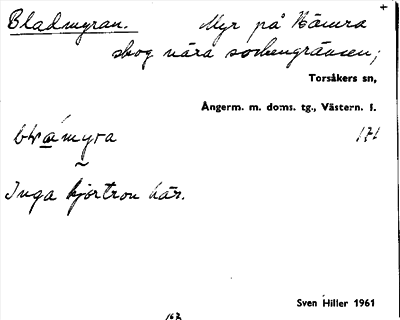 Bladmyran. Myr på Hämra
skog nära sockengränsen;
Torsåkers sn,
Ångerm. m. doms. tg., Västern. f.
171
Inga hjortron här.
Sven Hiller 1961